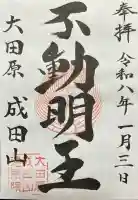 奉拝 令和八年一月三日
不動明王
大田原 成田山